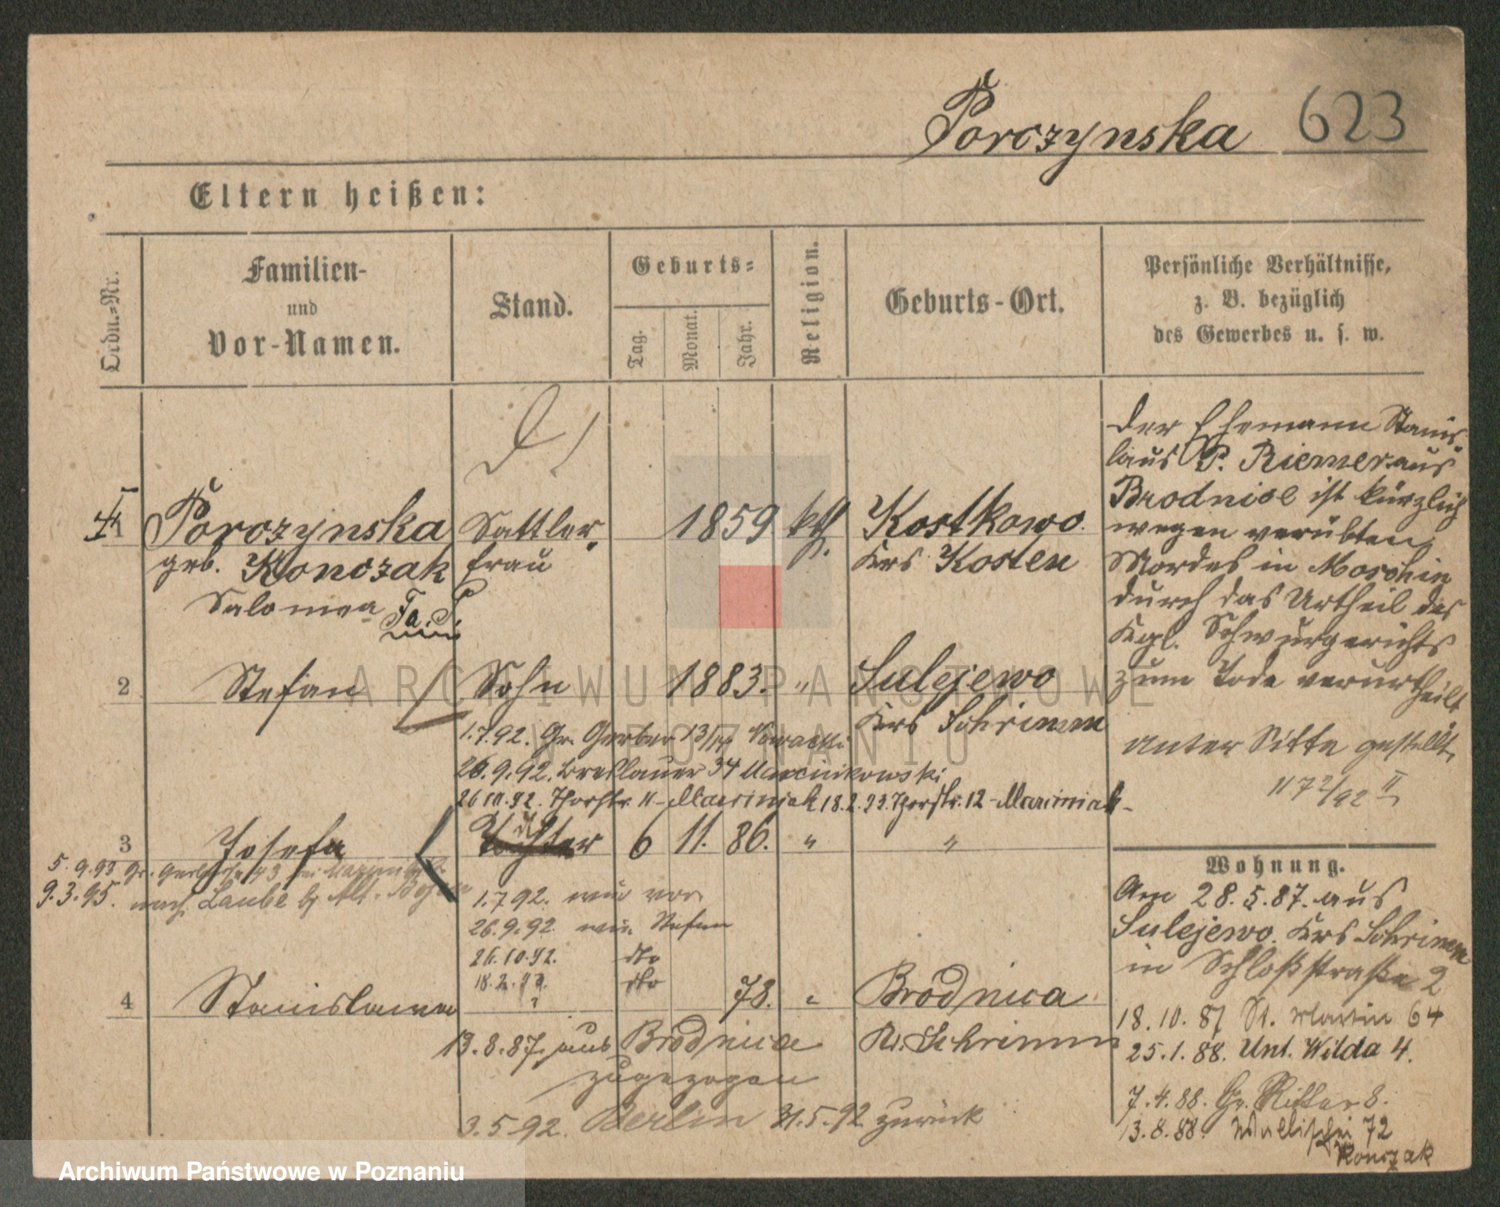 Porczynska 623
Eltern heißen:
Ordn.-Nr.
Familien-
und
Vor-Namen.
Stand.
Geburts-
Tag.
Monat.
Jahr.
Religion.
Geburts-Ort.
Persönliche Verhältnisse,
z. B. bezüglich
des Gewerbes u. s. w.
1 Porczynska Sattler 1859 kth. Kostkowo
geb. Konczak frau Krs Kosten
Salomea
2 Stefan Sohn 1883. " Sulejewo
Krs Schrimm
1.7.92. Gr. Gerber 13/14
26.9.92. Breslauer 34 Marcinkowski
26.10.92. 11 - Marciniak 18.2.93. 12 - Marciniak
3 Josefa 6 11. 86. " "
5.9.93 Gr.
9.3.95. nach
1.7.92. wie vor
26.9.92 wie Stefan
26.10.92. dto
18.2.93. dto
4 Stanislawa 78. " Brodnica
Kr. Schrimm
13.8.87. aus Brodnica
zugezogen
3.5.92. Berlin 31.5.92 zurück
Der Ehemann Stanis-
laus P. Riemer aus
Brodnice ist kürzlich
wegen verübten
Mordes in Moschin
durch das Urtheil des
Kgl. Schwurgerichts
zum Tode verurtheilt
unter Sitte gestellt
1172/92 II
Wohnung.
Am 28.5.87. aus
Sulejewo Krs Schrimm
in Schloßstraße 2
18.10.87 St. Martin 64
25.1.88. Unt. Wilda 4.
7.4.88. Gr. Ritter 8.
13.8.88. Wallischei 72
Konczak
ARCHIWUM PAŃSTWOWE
W POZNANIU
Archiwum Państwowe w Poznaniu